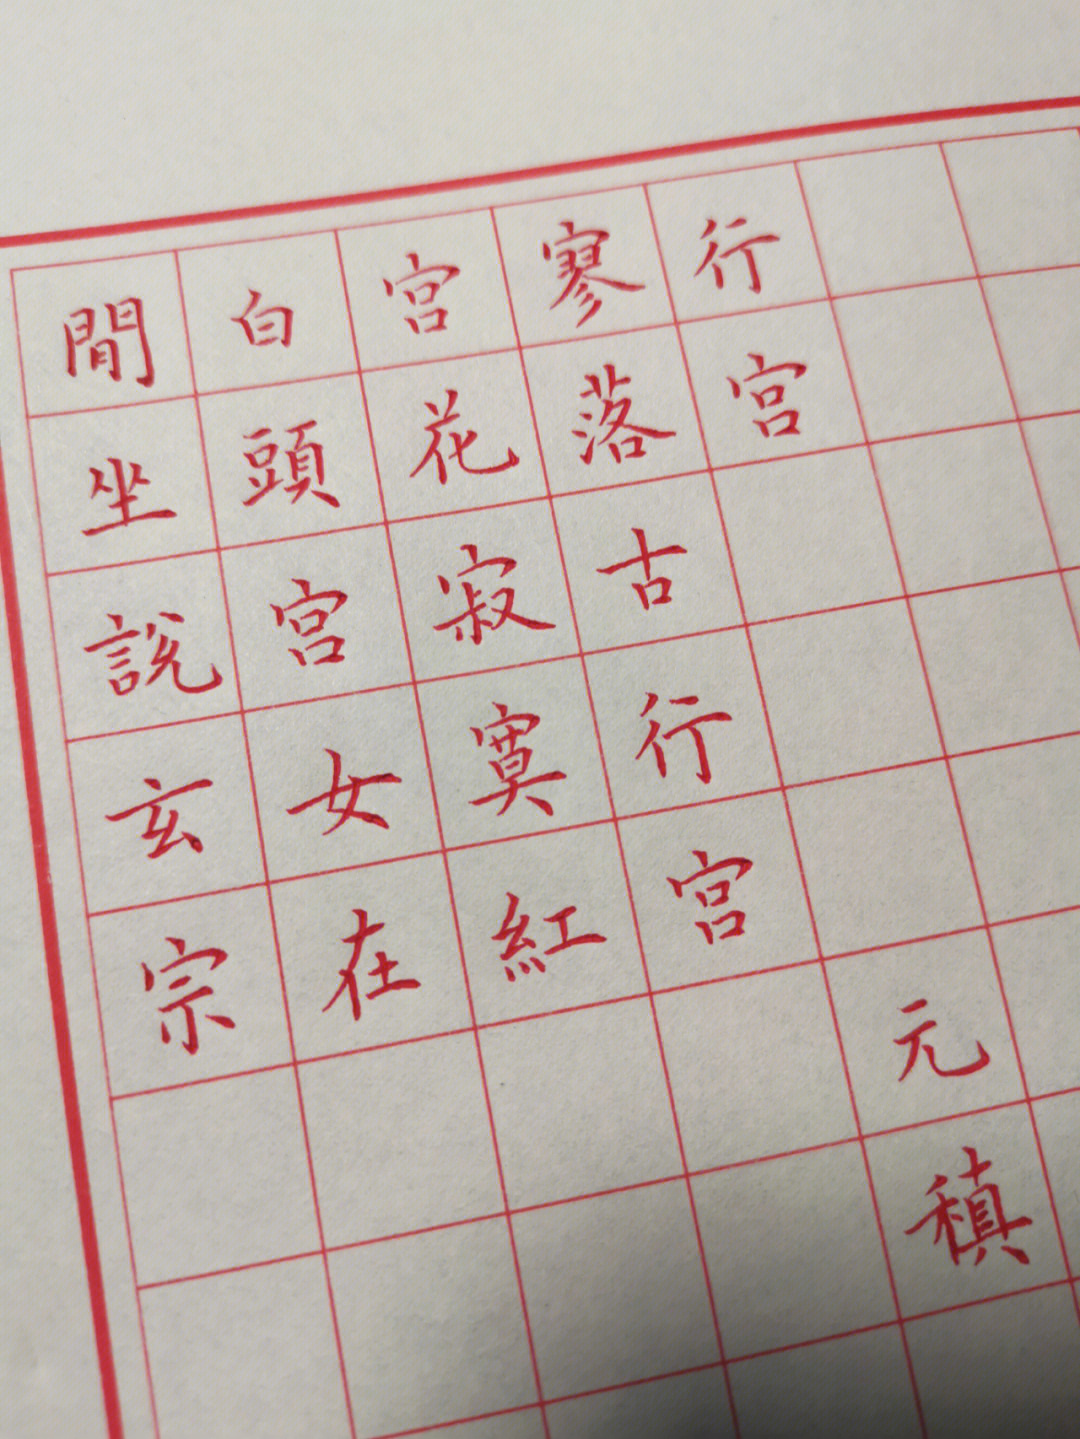 行宫 元稹
寥落古行宫
宫花寂寞紅
白頭宫女在
閒坐說玄宗